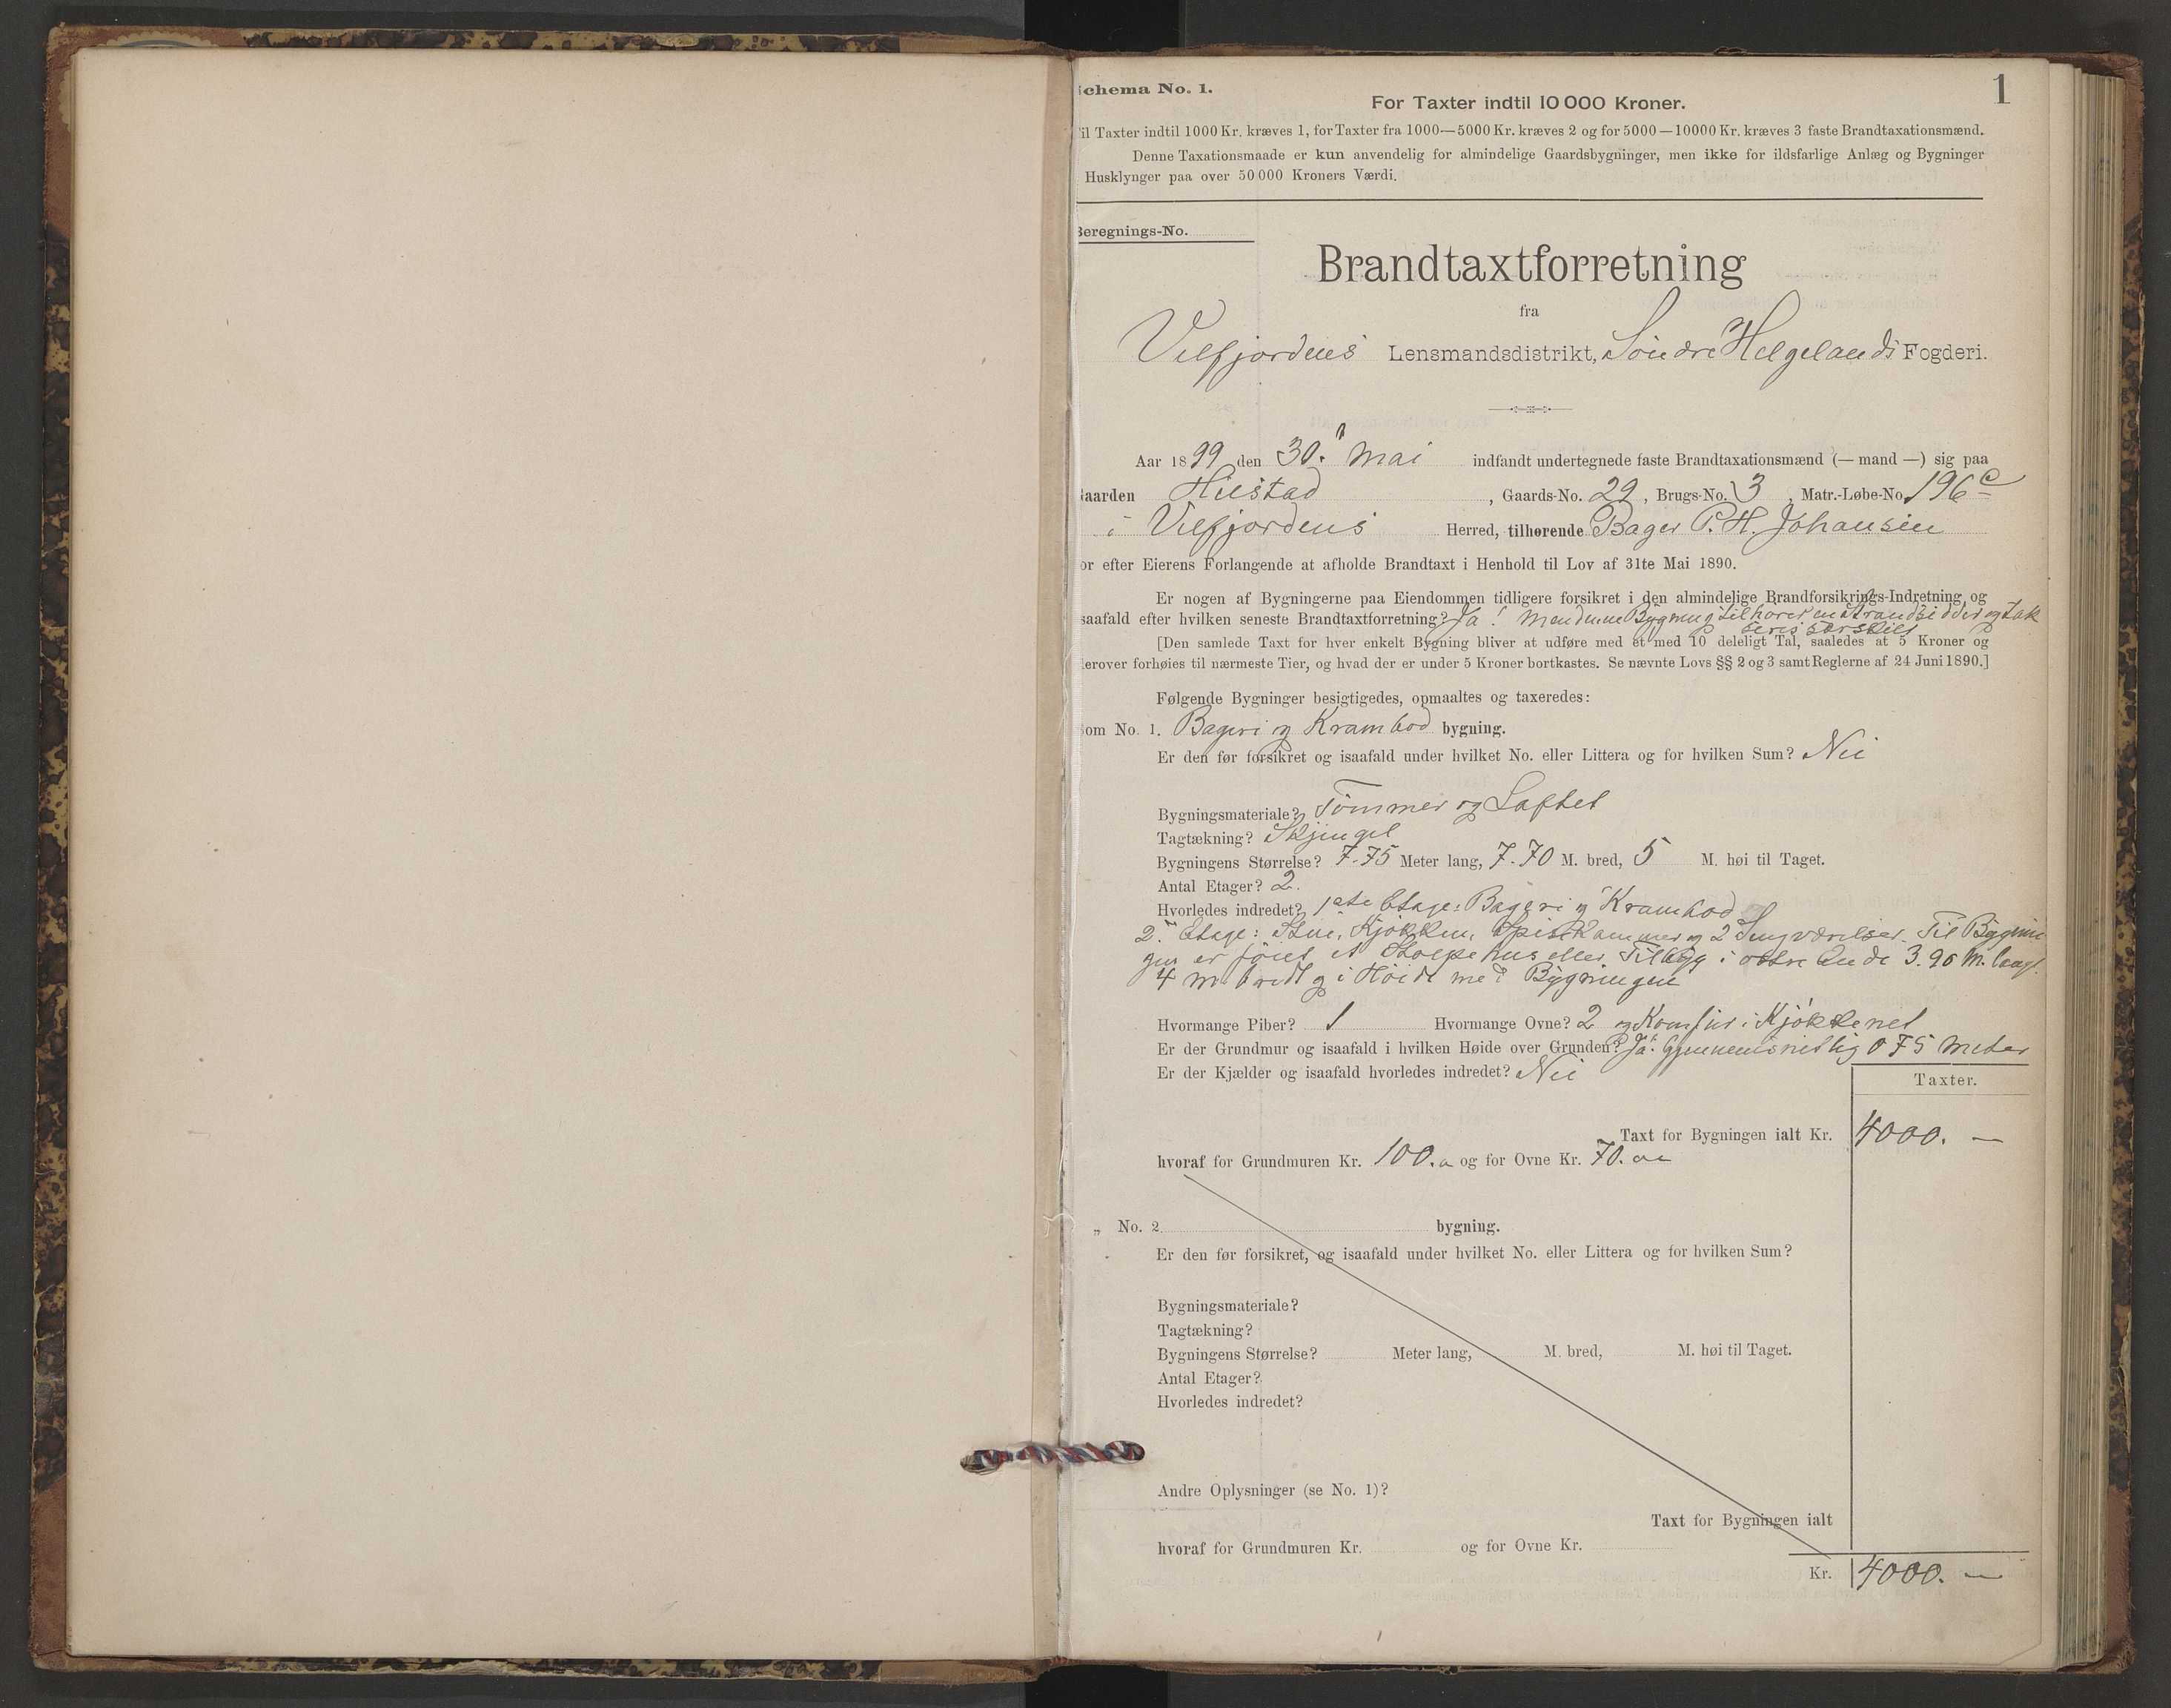 chema No. 1.
1
For Taxter indtil 10 000 Kroner.
il Taxter indtil 1000 Kr. kræves 1, for Taxter fra 1000—5000 Kr. kræves 2 og for 5000—10000 Kr. kræves 3 faste Brandtaxationsmænd.
Denne Taxationsmaade er kun anvendelig for almindelige Gaardsbygninger, men ikke for ildsfarlige Anlæg og Bygninger
Husklynger paa over 50 000 Kroners Værdi.
Beregnings-No.
Brandtaxtforretning
fra
Velfjordens Lensmandsdistrikt, Söndre Helgelands Fogderi.
Aar 1899 den 30. Mai indfandt undertegnede faste Brandtaxationsmænd (— mand —) sig paa
aarden Hilstad, Gaards-No. 29, Brugs-No. 3, Matr.-Løbe-No. 196 c
i Velfjordens Herred, tilhørende Bager P. H. Johansen
or efter Eierens Forlangende at afholde Brandtaxt i Henhold til Lov af 31te Mai 1890.
Er nogen af Bygningerne paa Eiendommen tidligere forsikret i den almindelige Brandforsikrings-Indretning og
saafald efter hvilken seneste Brandtaxtforretning? Ja! Men denne Bygning tilhører en Strandsidder og tak
seres særskilt
[Den samlede Taxt for hver enkelt Bygning bliver at udføre med et med 10 deleligt Tal, saaledes at 5 Kroner og
erover forhøies til nærmeste Tier, og hvad der er under 5 Kroner bortkastes. Se nævnte Lovs §§ 2 og 3 samt Reglerne af 24 Juni 1890.]
Følgende Bygninger besigtigedes, opmaaltes og taxeredes:
om No. 1. Bageri og Krambod bygning.
Er den før forsikret og isaafald under hvilket No. eller Littera og for hvilken Sum? Nei
Bygningsmateriale? Tömmer og Laftet
Tagtækning? Skjingel
Bygningens Størrelse? 7.75 Meter lang, 7.70 M. bred, 5 M. høi til Taget.
Antal Etager? 2.
Hvorledes indredet? 1ste Etage: Bageri og Krambod
2. Etage: Stue, Kjøkken, Spiskammer og 2 Sengværelser. Til Bygnin
gen er föiet et Stolpehus eller Tilbyg i østre Ende 3.90 M. langt
4 m. bredt og i Höide med Bygningen
Hvormange Piber? 1 Hvormange Ovne? 2 og Komfur i Kjøkkenet
Er der Grundmur og isaafald i hvilken Høide over Grunden? Ja. Gjennemsnitlig 0 75 Meter
Er der Kjælder og isaafald hvorledes indredet? Nei
Taxter.
Taxt for Bygningen ialt Kr. 4000. —
hvoraf for Grundmuren Kr. 100. og for Ovne Kr. 70.
„ No. 2 bygning.
Er den før forsikret, og isaafald under hvilket No. eller Littera og for hvilken Sum?
Bygningsmateriale?
Tagtækning?
Bygningens Størrelse? Meter lang, M. bred, M. høi til Taget.
Antal Etager?
Hvorledes indredet?
Andre Oplysninger (se No. 1)?
Taxt for Bygningen ialt
hvoraf for Grundmuren Kr. og for Ovne Kr.
Kr. 4000. —